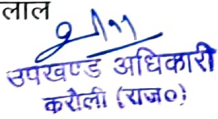 लाल
उपखण्ड अधिकारी
करौली (राज०)